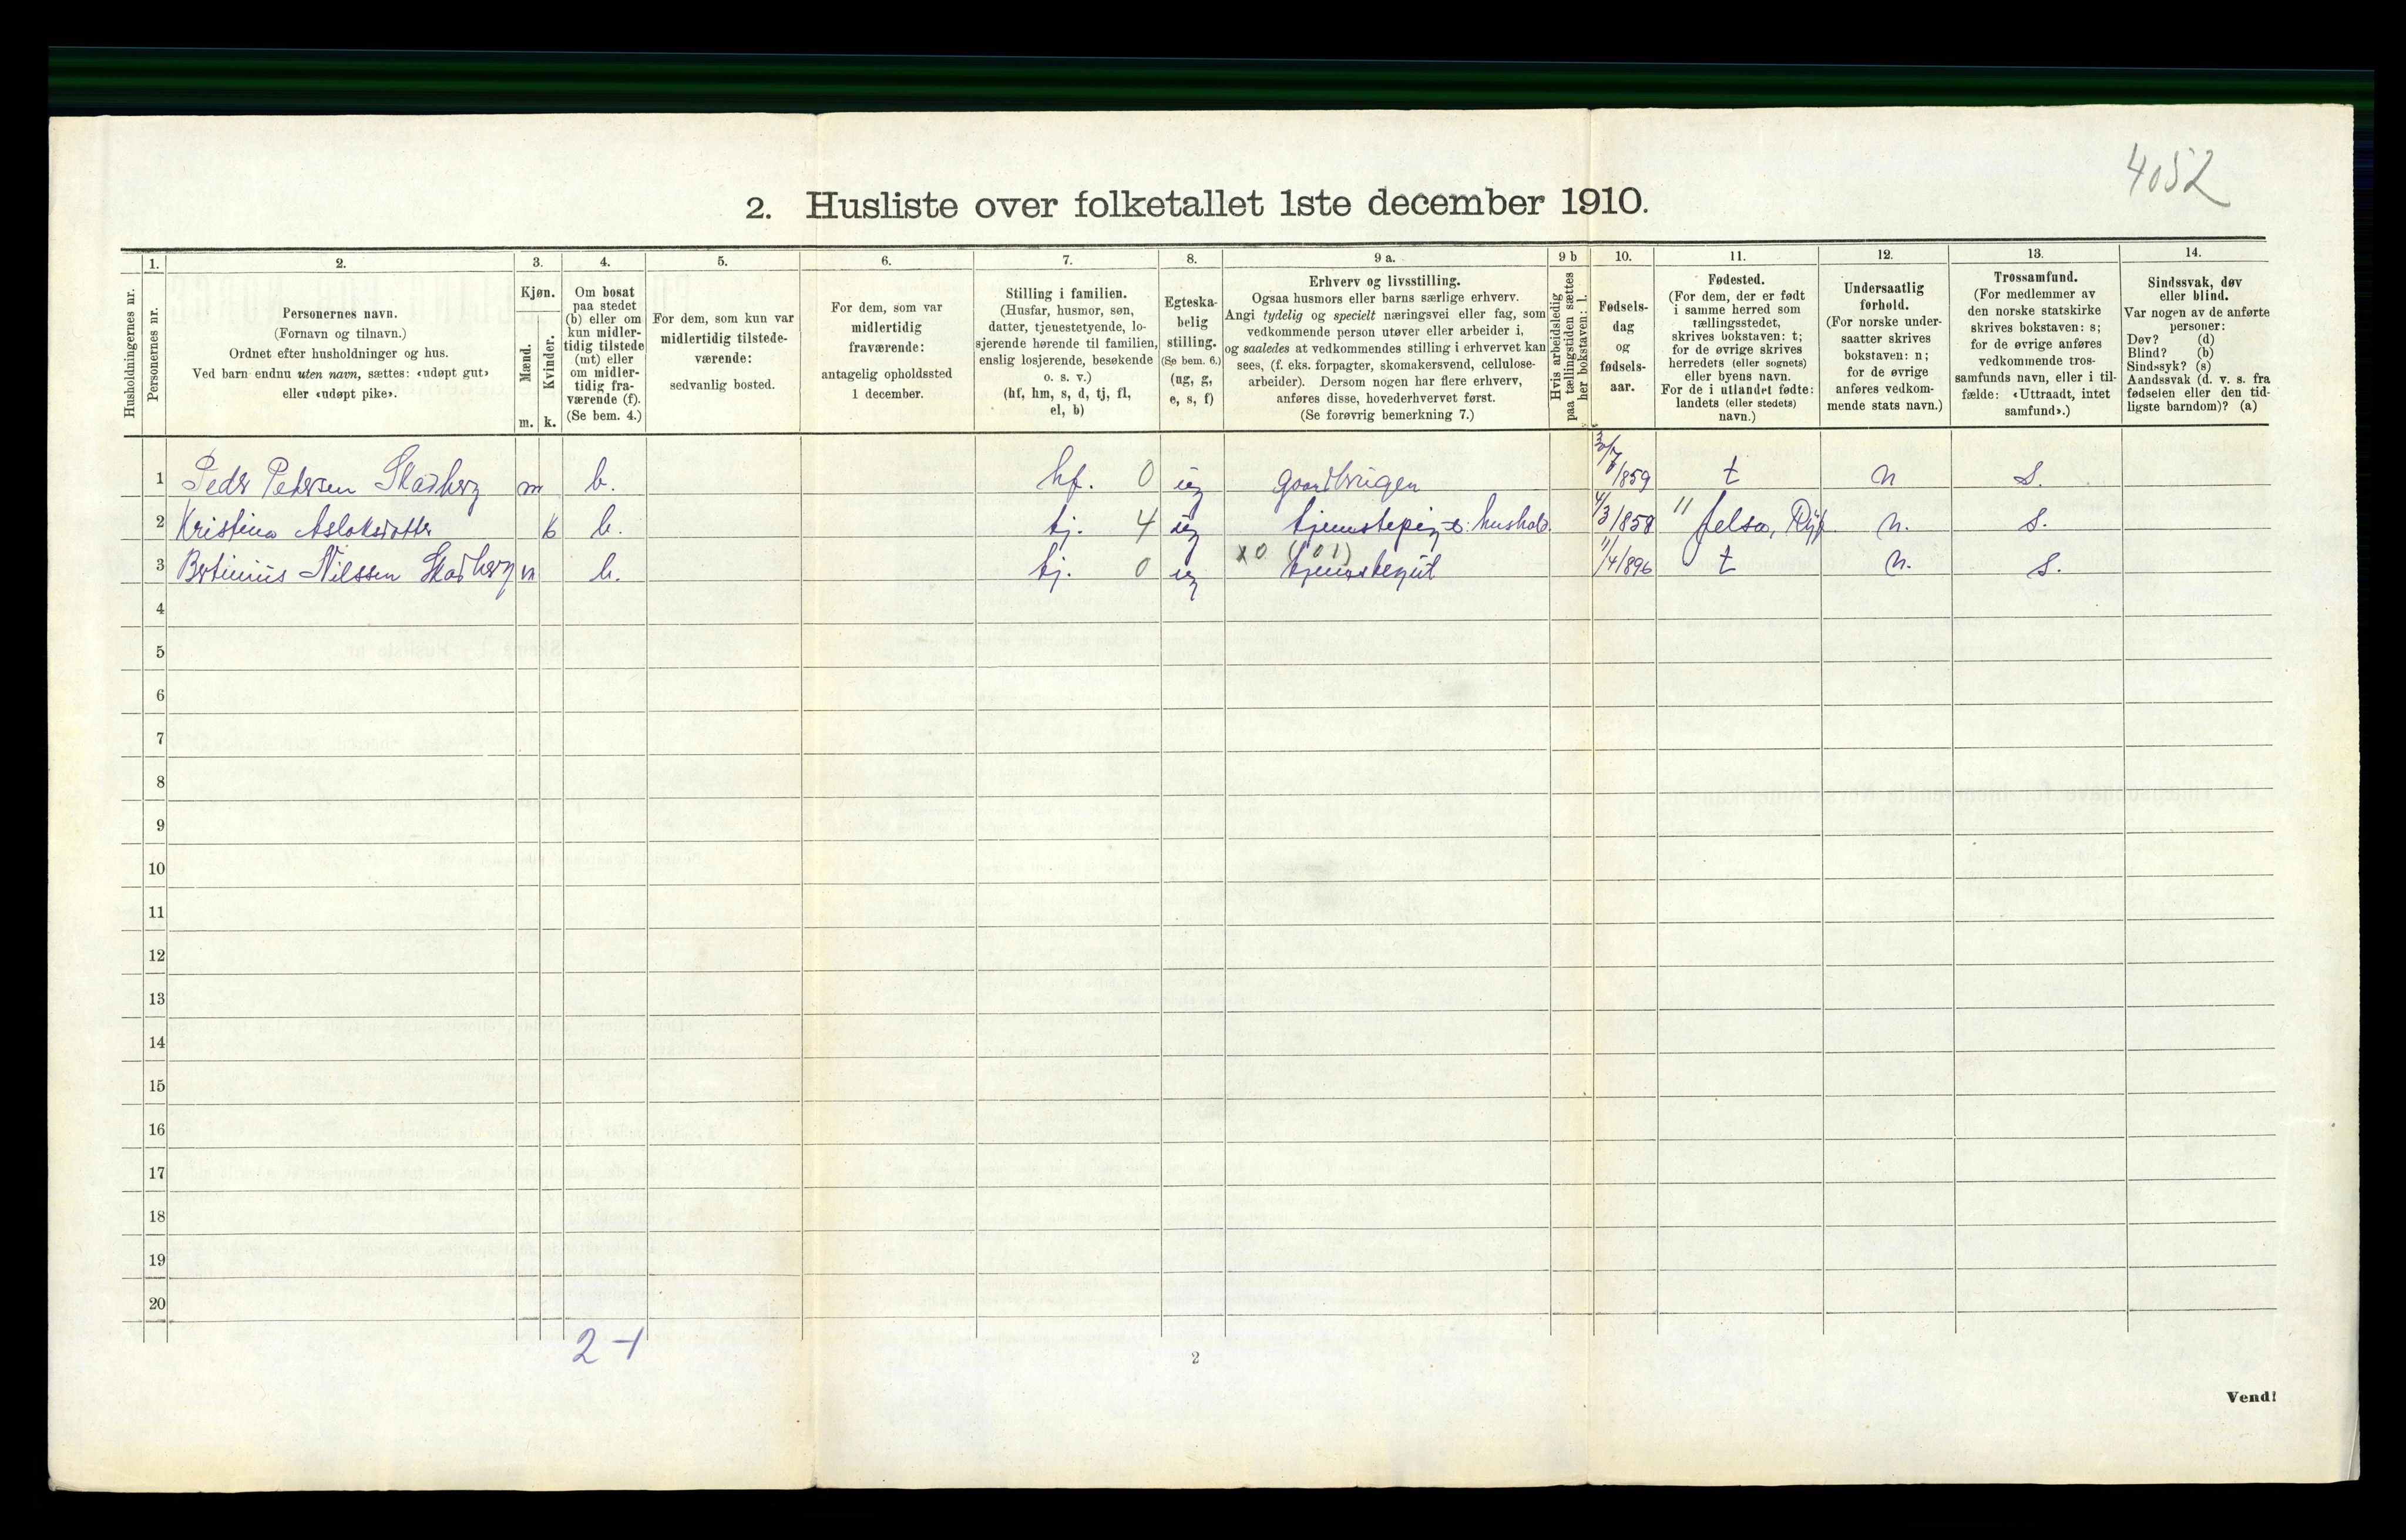 4052
2. Husliste over folketallet 1ste december 1910.
1. 2. 3. 4. 5. 6. 7. 8. 9 a. 9 b 10. 11. 12. 13. 14.
Husholdningernes nr.
Personernes nr.
Personernes navn.
(Fornavn og tilnavn.)
Ordnet efter husholdninger og hus.
Ved barn endnu uten navn, sættes: «udøpt gut»
eller «udøpt pike».
Kjøn.
Mænd.
Kvinder.
m. k.
Om bosat
paa stedet
(b) eller om
kun midler-
tidig tilstede
(mt) eller
om midler-
tidig fra-
værende (f).
(Se bem. 4.)
For dem, som kun var
midlertidig tilstede-
værende:
sedvanlig bosted.
For dem, som var
midlertidig
fraværende:
antagelig opholdssted
1 december.
Stilling i familien.
(Husfar, husmor, søn,
datter, tjenestetyende, lo-
sjerende hørende til familien,
enslig losjerende, besøkende
o. s. v.)
(hf, hm, s, d, tj, fl,
el, b)
Egteska-
belig
stilling.
(Se bem. 6.)
(ug, g,
e, s, f)
Erhverv og livsstilling.
Ogsaa husmors eller barns særlige erhverv.
Angi tydelig og specielt næringsvei eller fag, som
vedkommende person utøver eller arbeider i,
og saaledes at vedkommendes stilling i erhvervet kan
sees, (f. eks. forpagter, skomakersvend, cellulose-
arbeider). Dersom nogen har flere erhverv,
anføres disse, hovederhvervet først.
(Se forøvrig bemerkning 7.)
Hvis arbeidsledig
paa tællingstiden sættes
her bokstaven: l.
Fødsels-
dag
og
fødsels-
aar.
Fødested.
(For dem, der er født
i samme herred som
tællingsstedet,
skrives bokstaven: t;
for de øvrige skrives
herredets (eller sognets)
eller byens navn.
For de i utlandet fødte:
landets (eller stedets)
navn.)
Undersaatlig
forhold.
(For norske under-
saatter skrives
bokstaven: n;
for de øvrige
anføres vedkom-
mende stats navn.)
Trossamfund.
(For medlemmer av
den norske statskirke
skrives bokstaven: s;
for de øvrige anføres
vedkommende tros-
samfunds navn, eller i til-
fælde: «Uttraadt, intet
samfund».)
Sindssvak, døv
eller blind.
Var nogen av de anførte
personer:
Døv? (d)
Blind? (b)
Sindssyk? (s)
Aandssvak (d. v. s. fra
fødselen eller den tid-
ligste barndom)? (a)
1 Peder Petersen Skadberg m b. hf. 0 ug gaardbruger 30/7 1859 t n s.
2 Kristina Aslaksdotter k b. tj. 4 ug tjenestepige: hushold. 4/3 1858 " Jelsa, Ryf. n. s.
x0 (01)
3 Bertinius Nilssen Skadberg m b. tj. 0 ug tjenestegut 11/4 1896 t n. s.
4
5
6
7
8
9
10
11
12
13
14
15
16
17
18
19
20
2-1
2
Vend!